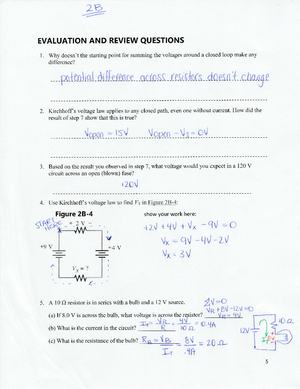 2B
EVALUATION AND REVIEW QUESTIONS
1. Why doesn't the starting point for summing the voltages around a closed loop make any
difference?
potential difference across resistors doesn't change
2. Kirchhoff's voltage law applies to any closed path, even one without current. How did the
result of step 7 show that this is true?
Vopen = 15V Vopen - Vs = 0V
3. Based on the result you observed in step 7, what voltage would you expect in a 120 V
circuit across an open (blown) fuse?
120V
4. Use Kirchhoff's voltage law to find Vx in Figure 2B-4:
Figure 2B-4
show your work here:
START HERE
+ 2 V −
+2V + 4V + Vx - 9V = 0
+9 V
+4 V
Vx = 9V - 4V - 2V
Vx = 3V
Vx = ?
5. A 10 Ω resistor is in series with a bulb and a 12 V source.
ΣV=0
(a) If 8.0 V is across the bulb, what voltage is across the resistor?
VR+8V-12V=0
VR = 4V
(b) What is the current in the circuit?
IT = VR/R = 4V/10Ω = 0.4A
(c) What is the resistance of the bulb?
= 8V/.4A = 20Ω
12V
10Ω
5